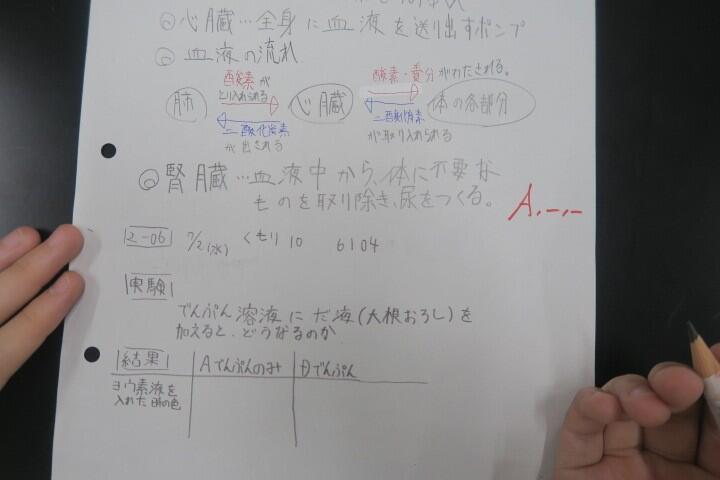 ◎心臓…全身に血液を送り出すポンプ
◎血液の流れ
酸素が
とり入れられる
酸素・養分がわたされる。
肺
心臓
体の各部分
二酸化炭素
が出される
二酸化炭素
が取り入れられる
◎腎臓…血液中から、体に不要な
ものを取り除き、尿をつくる。
A.-.-
2-06 7/2(水) くもり 10 6104
実験
でんぷん溶液にだ液(大根おろし)を
加えると、どうなるのか
結果 Aでんぷんのみ Bでんぷん
ヨウ素液を
入れた時の色